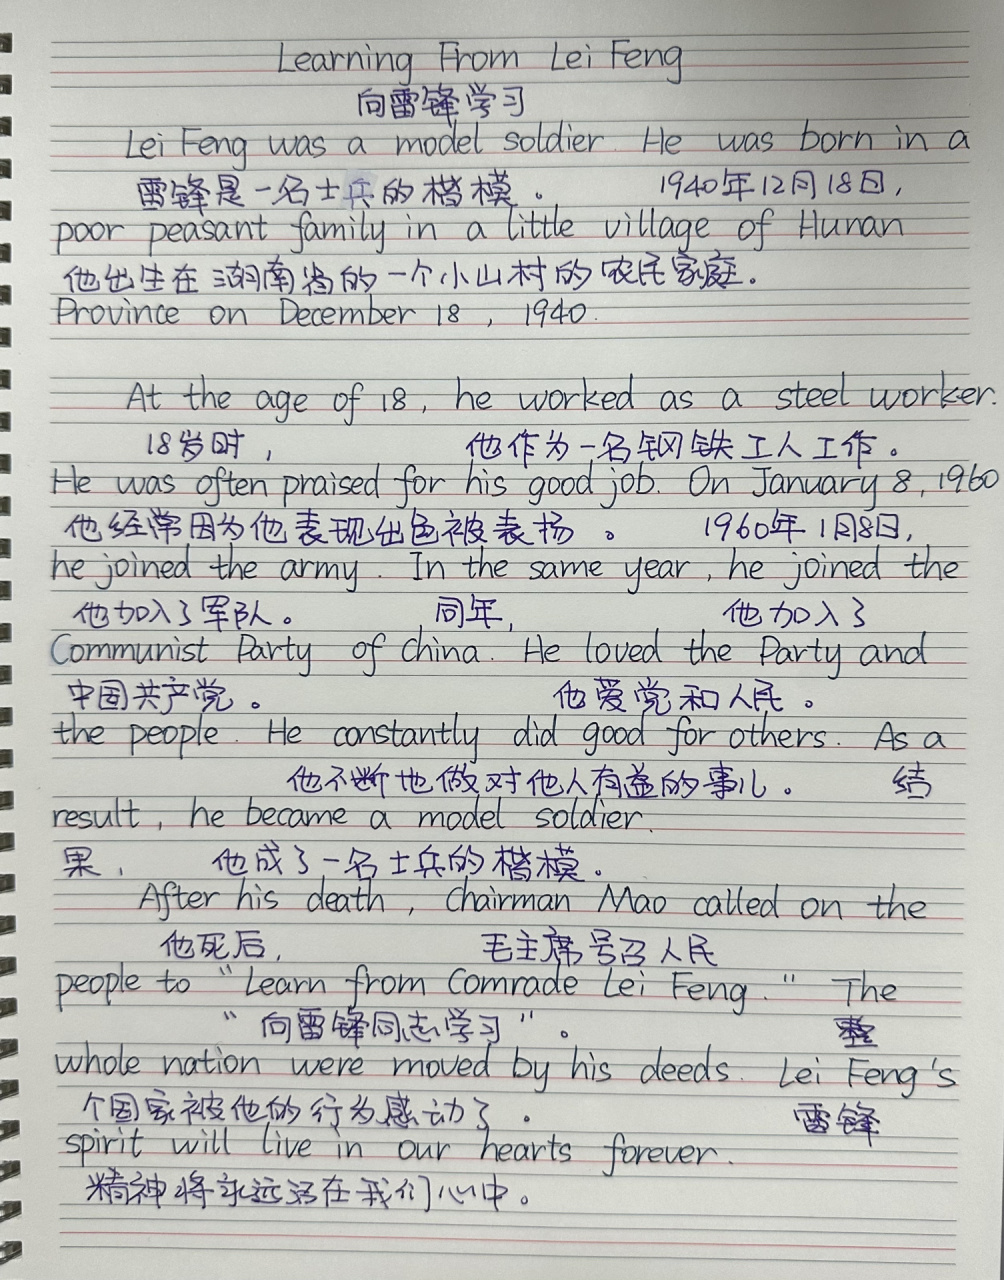 Learning From Lei Feng
向雷锋学习
Lei Feng was a model soldier. He was born in a
雷锋是一名士兵的楷模。 1940年12月18日,
poor peasant family in a little village of Hunan
他出生在湖南省的一个小山村的农民家庭.
Province on December 18, 1940.
At the age of 18, he worked as a steel worker.
18岁时, 他作为一名钢铁工人工作。
He was often praised for his good job. On January 8, 1960
他经常因为他表现出色被表扬。 1960年1月8日,
he joined the army. In the same year, he joined the
他加入了军队。 同年, 他加入了
Communist Party of China. He loved the Party and
中国共产党。 他爱党和人民。
the people. He constantly did good for others. As a
他不断地做对他人有益的事儿。 结
result, he became a model soldier.
果, 他成了一名士兵的楷模。
After his death, Chairman Mao called on the
他死后, 毛主席号召人民
people to "Learn from Comrade Lei Feng." The
"向雷锋同志学习"。 整
whole nation were moved by his deeds. Lei Feng's
个国家被他的行为感动了。 雷锋
spirit will live in our hearts forever.
精神将永远活在我们心中。